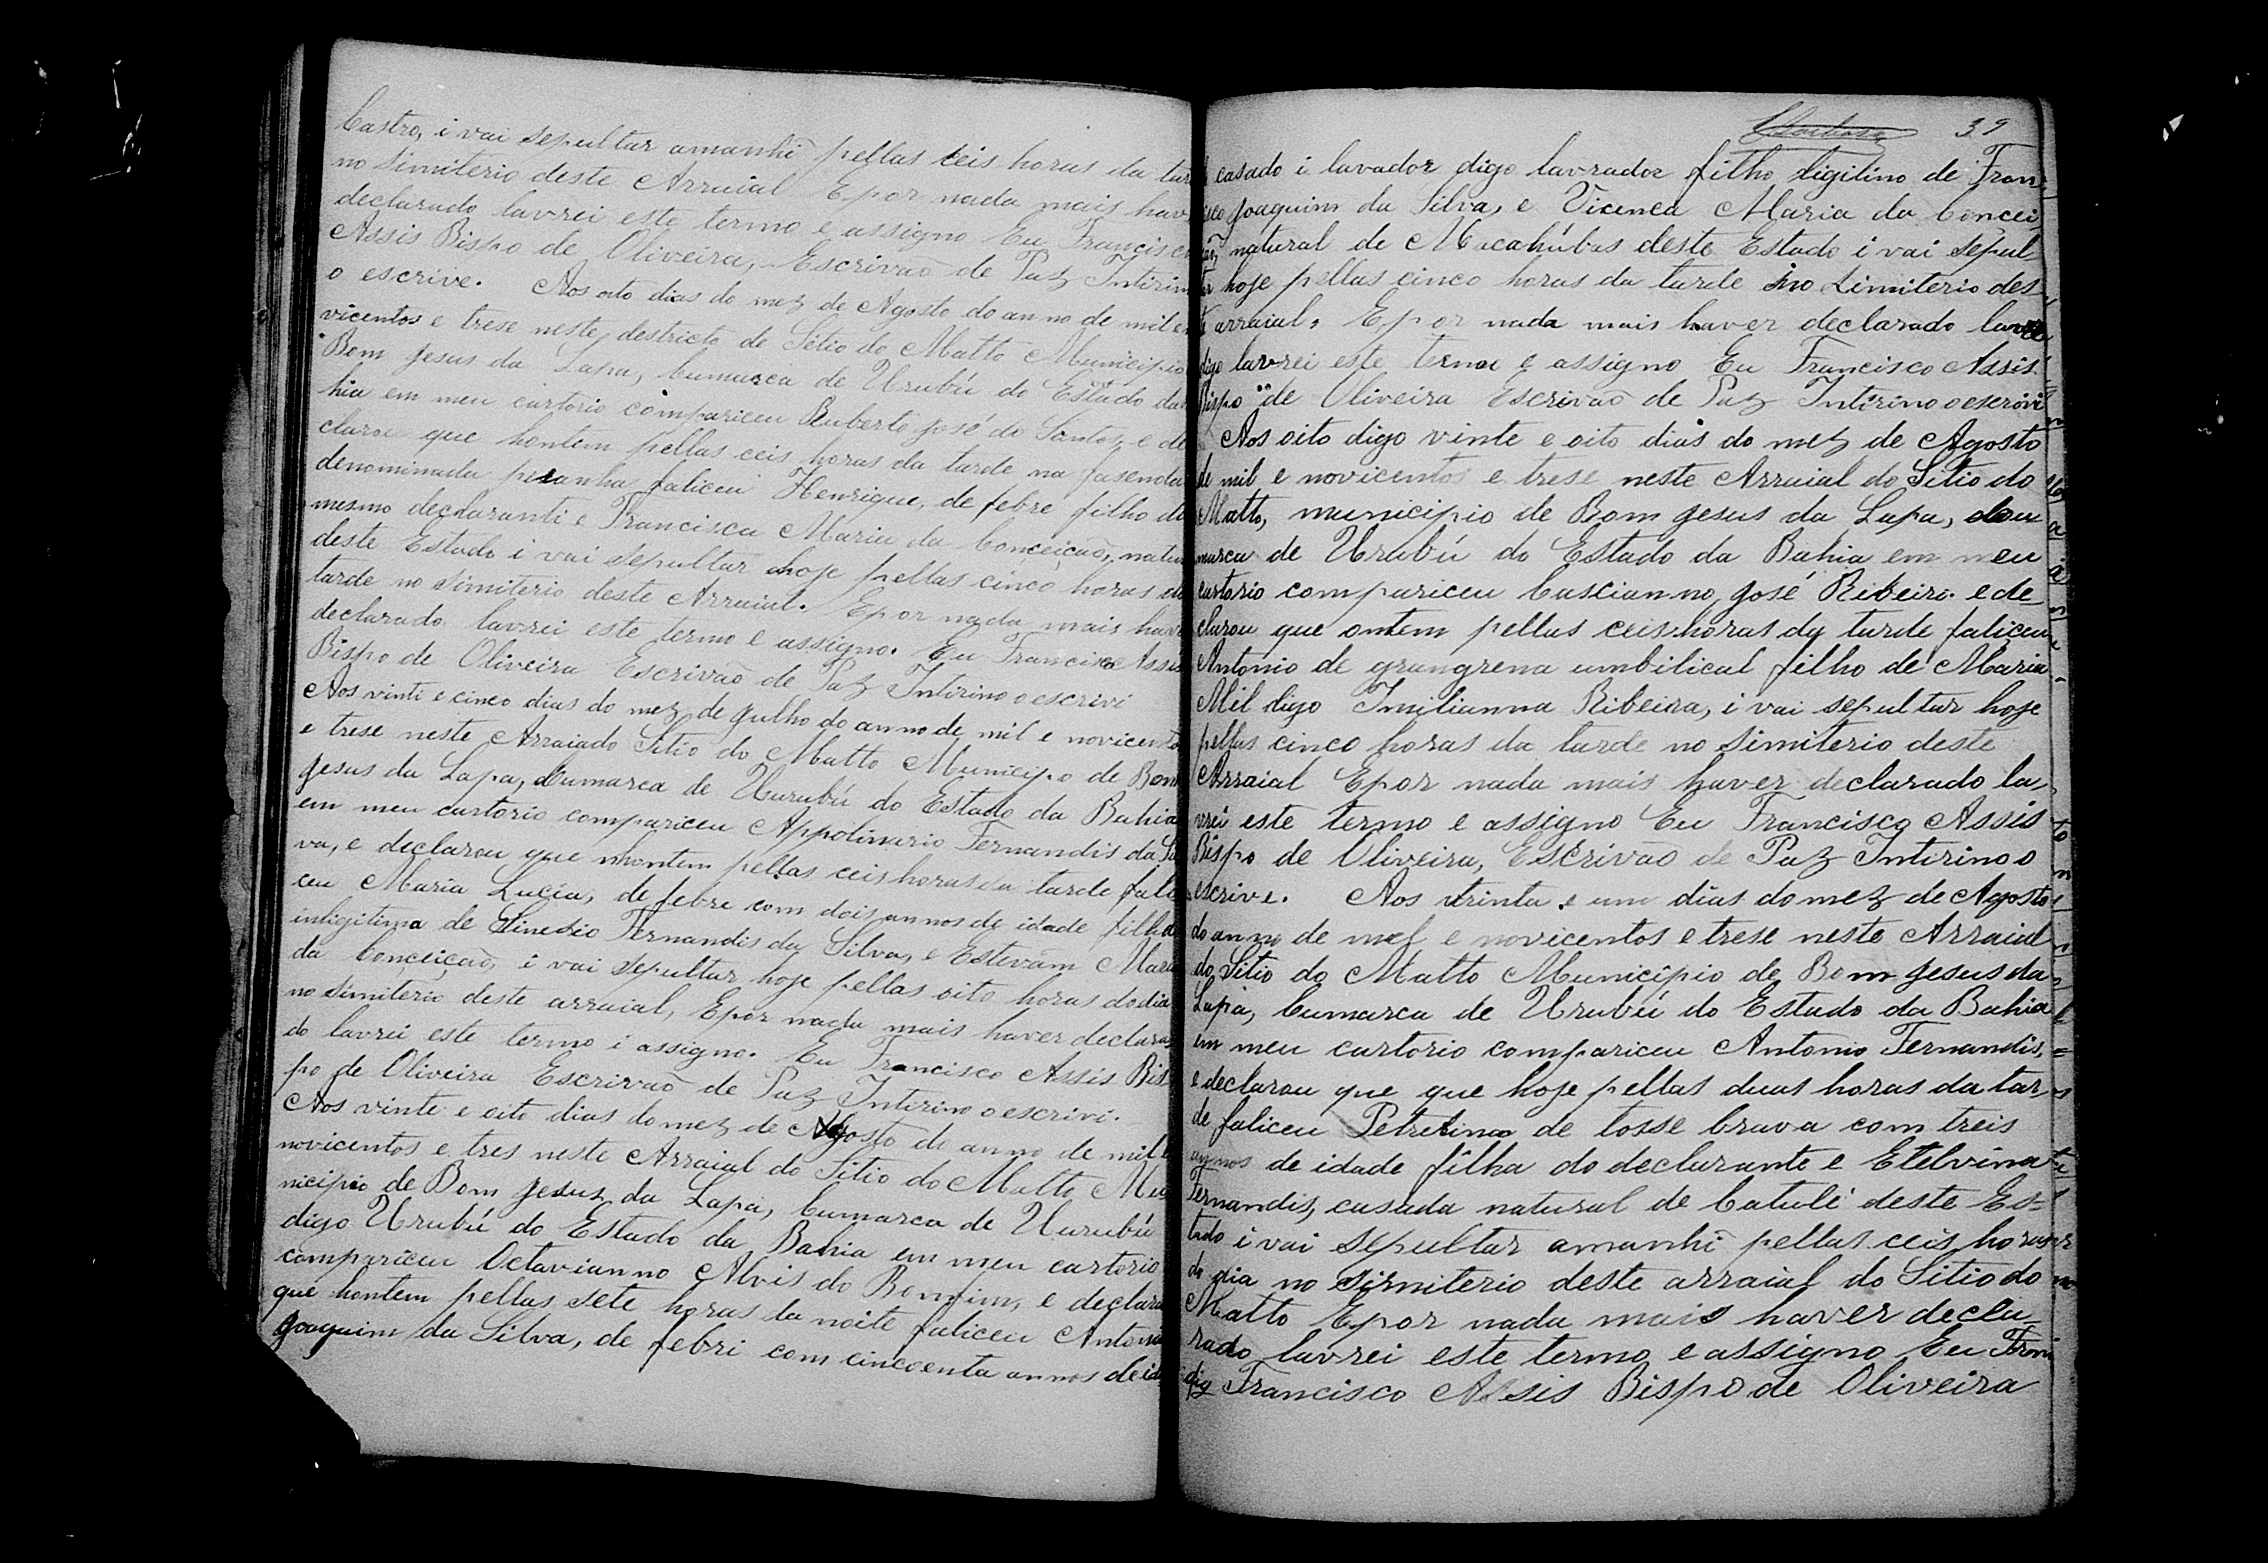 Castro, i vai sepultar amanhi pellas ceis horas da tar
no simiterio deste Arraial Epor nada mais hav
declarado lavrei este termo e assigno Eu Francisco
Assis Bispo de Oliveira, Escrivaõ de Paz Intirin
o escrive. Aos oito dias do mez de Agosto do anno de mil e
vicentos e trese neste destricto de Sitio do Matto Municipio
Bom Jesus da Lapa, Cumarca de Urubú do Estado da
hia em meu cartorio compariceu Ruberto José do Santos, e de
clarou que hontem pellas ceis horas da tarde na fasenda
denominada faliceu Henrique, de febre filho do
mesmo declaranti e Francisca Maria da Conceiçaõ, natu
deste Estado i vai sepultar hoje pellas cinco horas da
tarde no simiterio deste Arraial. Epor nada mais have
declarado lavrei este termo e assigno. Eu Francisco Assis
Bispo de Oliveira Escrivaõ de Paz Intirino o escrivi
Aos vinti e cinco dias do mez de Julho do anno de mil e novicento
e trese neste Arraiado Sitio do Matto Municipo de Bom
Jesus da Lapa, Cumarca de Uurubú do Estado da Bahia
em meu cartorio compariceu Appolinario Fernandis da Sil
va, e declarou que nhontem pellas ceis horas da tarde fali
ceu Maria Lucia, de febre com dois annos de idade filha
inligitima de Fernandis da Silva, e Estevam Mari
da Conceiçaõ, i vai sepultar hoje pellas oito horas do dia
no simiterio deste arraial, Epor nada mais haver declara
do lavrei este termo i assigno. Eu Francisco Assis Bis
po de Oliveira Escrivaõ de Paz Intirino o escrivi.
Aos vinte e oito dias do mez de Agosto do anno de mil e
novicentos e tres neste Arraial do Sitio do Matto Mu
nicipio de Bom Jesuz da Lapa, Cumarca de Uurubú
digo Urubú do Estado da Bahia em meu cartorio
compariceu Octavianno Alvis do Bomfim, e declara
que hontem pellas sete horas da noite faliceu Antonio
Joaquim da Silva, de febri com cincoenta annos de id
39
casado i lavador digo lavrador filho ligitino de Fran
cisco Joaquim da Silva, e Vicenca Maria da Concei
çaõ, natural de Macahúbas deste Estado i vai sepul
tar hoje pellas cinco horas da tarde no simiterio des
te arraial. Epor nada mais haver declarado lavre
digo lavrei este termo e assigno Eu Francisco Assis
Bispo de Oliveira Escrivaõ de Paz Intirino o escrivi
Aos oito digo vinte e oito dias do mez de Agosto
de mil e novicentos e trese neste Arraial do Sitio do
Matto, municipio de Bom Jesus da Lapa, cu
marca de Urubú do Estado da Bahia em meu
cartorio compariceu Cascianno José Ribeiro e de
clarou que ontem pellas ceis horas da tarde faliceu
Antonio de grangrena umbilical filho de Maria
Mil digo Imilianna Ribeira, i vai sepultar hoje
pellas cinco horas da tarde no simiterio deste
Arraial Epor nada mais haver declarado la
vrei este termo e assigno Eu Francisco Assis
Bispo de Oliveira, Escrivaõ de Paz Intirino o
escrive. Aos trinta e um dias do mez de Agosto
do anno de mel e novicentos e trese neste Arraial
do Sitio do Matto Municipio de Bom Jesus da
Lapa, Cumarca de Urubú do Estado da Bahia
em meu cartorio compariceu Antonio Fernandis,
e declarou que que hoje pellas duas horas da tar
de faliceu Petrelina de tosse brava com treis
annos de idade filha do declarante e Etelvina
Fernandis, casada natural de Catulé deste Es=
tado i vai sepultar amanhi pellas ceis horas
do dia no simiterio deste arraial do Sitio do
Matto Epor nada mais haver decla
rado lavrei este termo e assigno Eu Fran
digo Francisco Assis Bispo de Oliveira